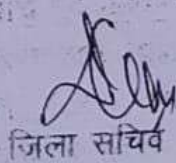 जिला सचिव